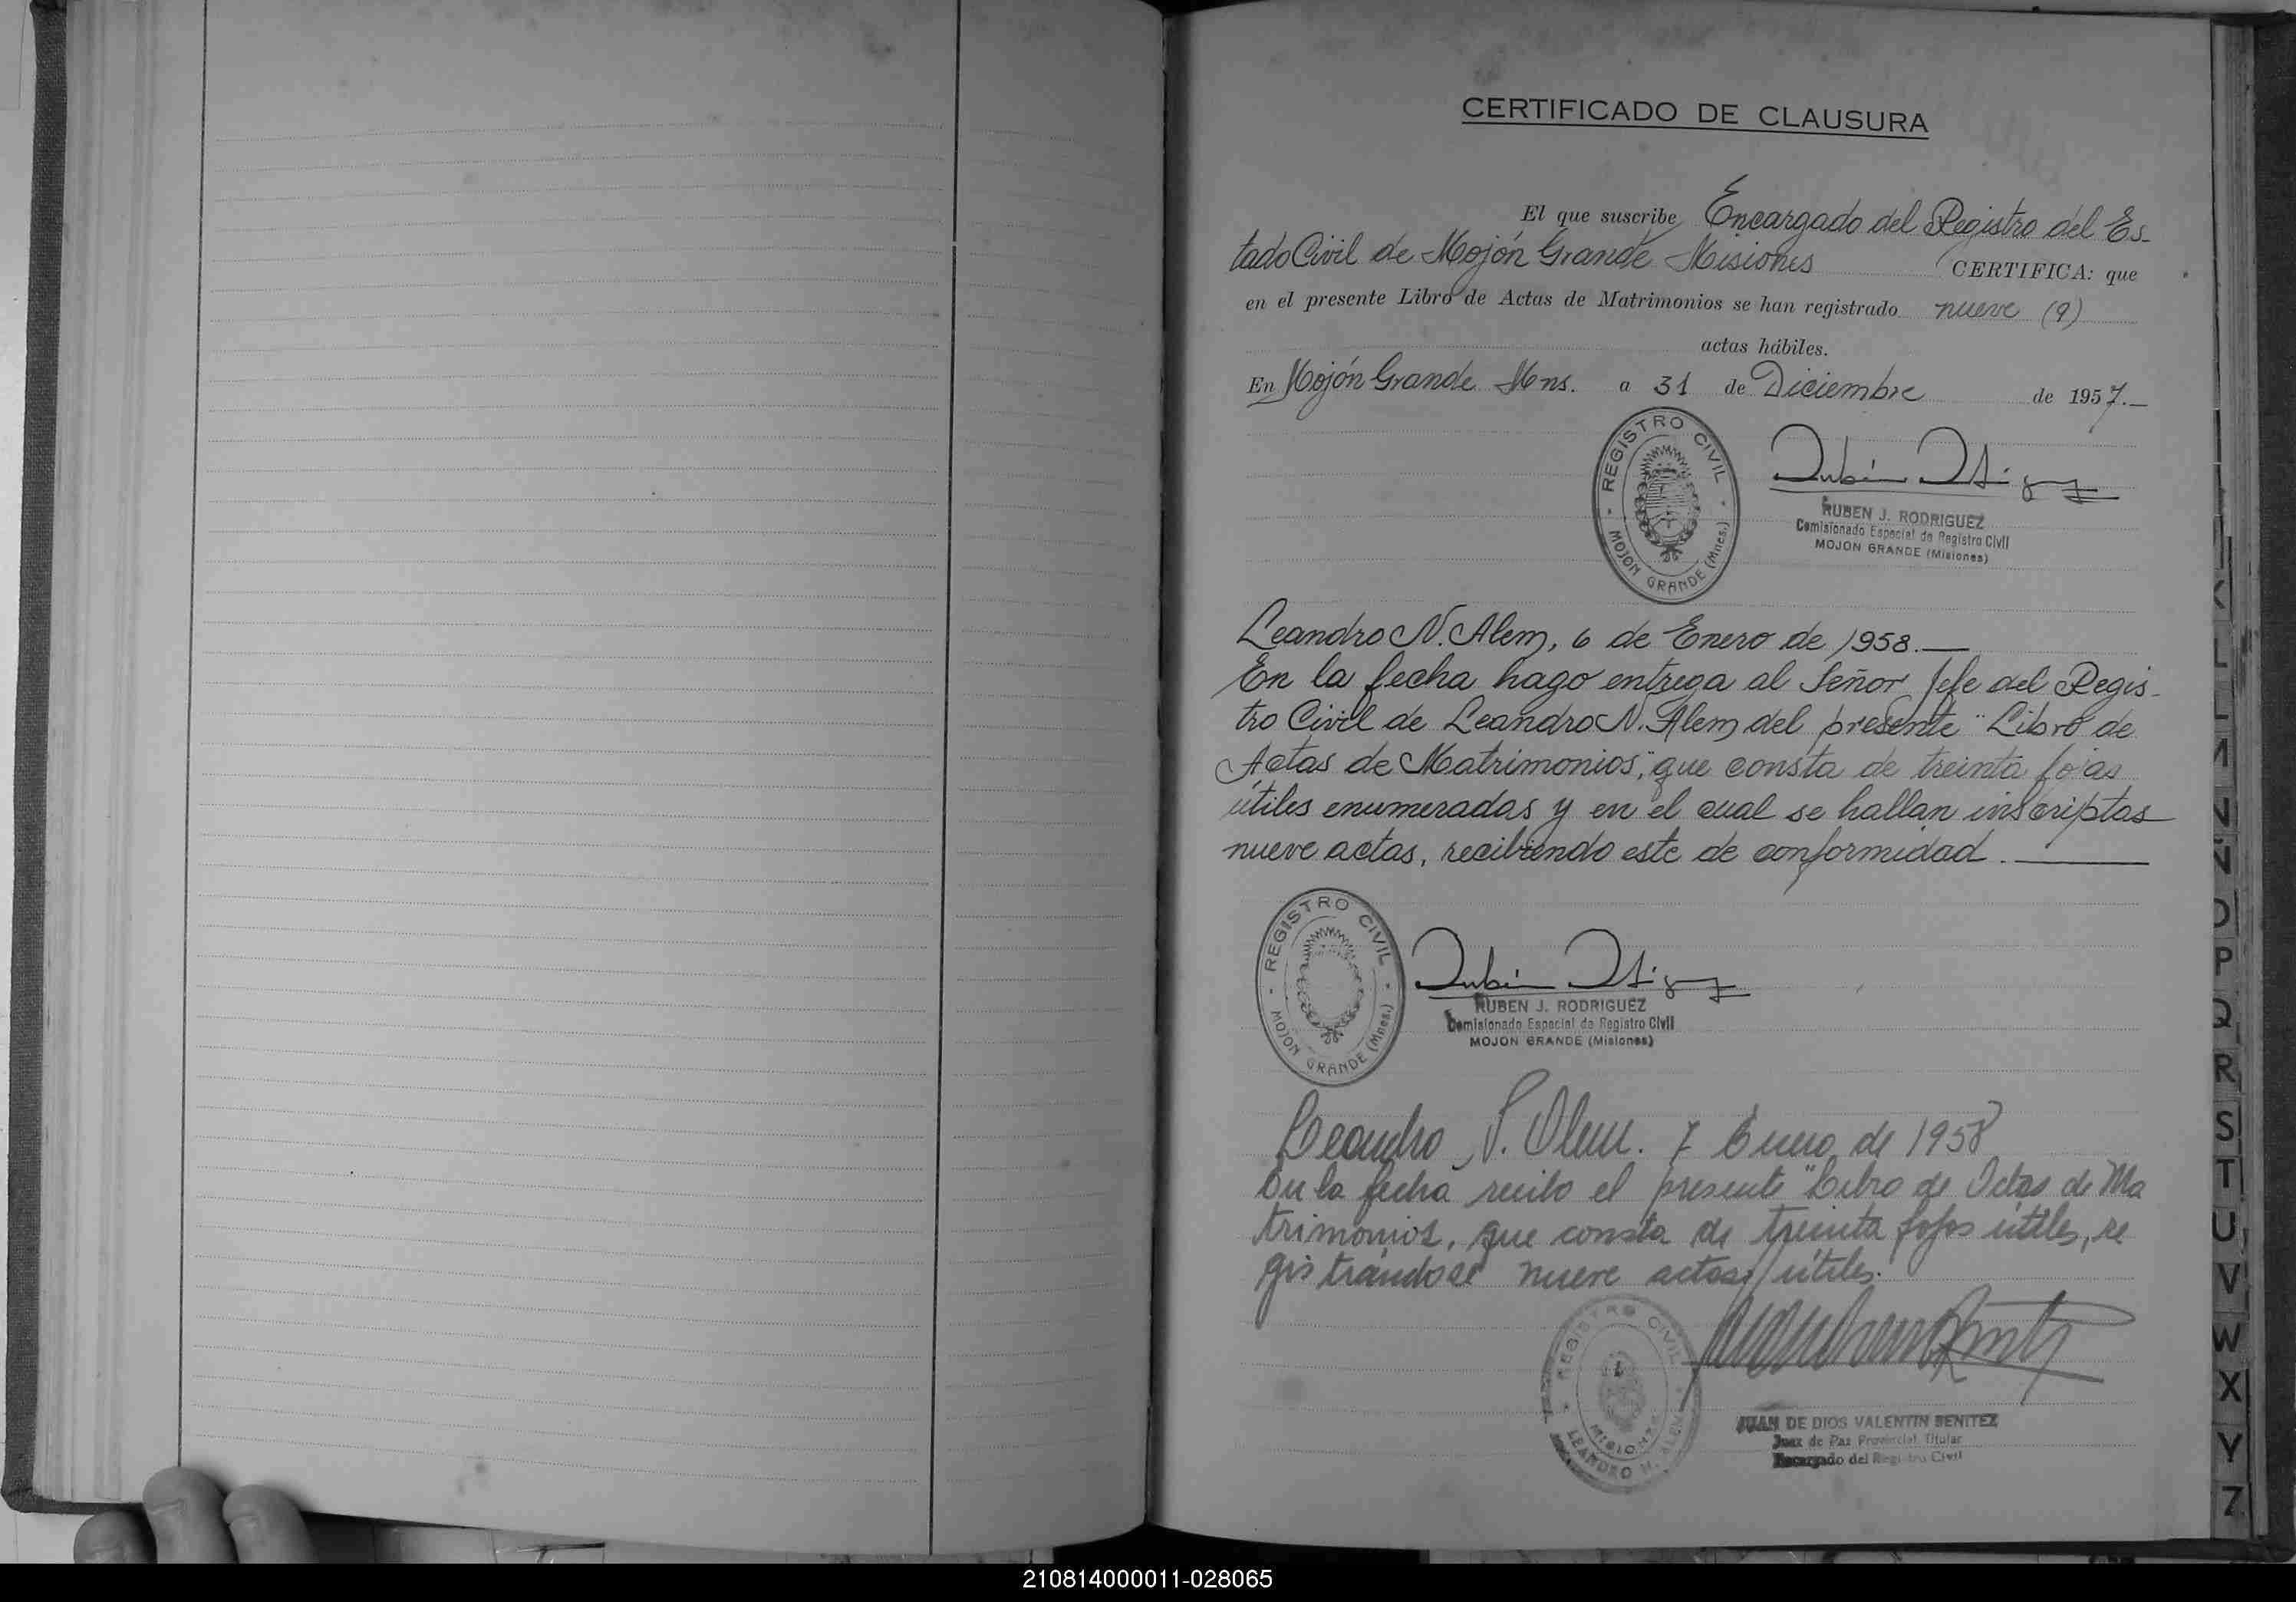 CERTIFICADO DE CLAUSURA
El que suscribe Encargado del Registro del Es-
tado Civil de Mojón Grande Misiones CERTIFICA: que
en el presente Libro de Actas de Matrimonios se han registrado nueve (9)
actas hábiles.
En Mojón Grande Mns. a 31 de Diciembre de 1957.—
REGISTRO CIVIL
MOJON GRANDE (Mnes.)
RUBEN J. RODRIGUEZ
Comisionado Especial de Registro Civil
MOJON GRANDE (Misiones)
Leandro N. Alem, 6 de Enero de 1958.—
En la fecha hago entrega al Señor Jefe del Regis-
tro Civil de Leandro N. Alem del presente "Libro de
Actas de Matrimonios", que consta de treinta fojas
útiles enumeradas y en el cual se hallan inscriptas
nueve actas, recibiendo este de conformidad.—
REGISTRO CIVIL
MOJON GRANDE (Mnes.)
RUBEN J. RODRIGUEZ
Comisionado Especial de Registro Civil
MOJON GRANDE (Misiones)
Leandro N. Alem. 7 Enero de 1958
En la fecha recibo el presente "Libro de Actas de Ma
trimonios, que consta de treinta fojas útiles, re
gistrándose nueve actas útiles.
REGISTRO CIVIL
MISIONES
LEANDRO N. ALEM
JUAN DE DIOS VALENTIN BENITEZ
Juez de Paz Provincial Titular
Encargado del Registro Civil
K
L
L
M
N
Ñ
O
P
Q
R
S
T
U
V
W
X
Y
Z
210814000011-028065